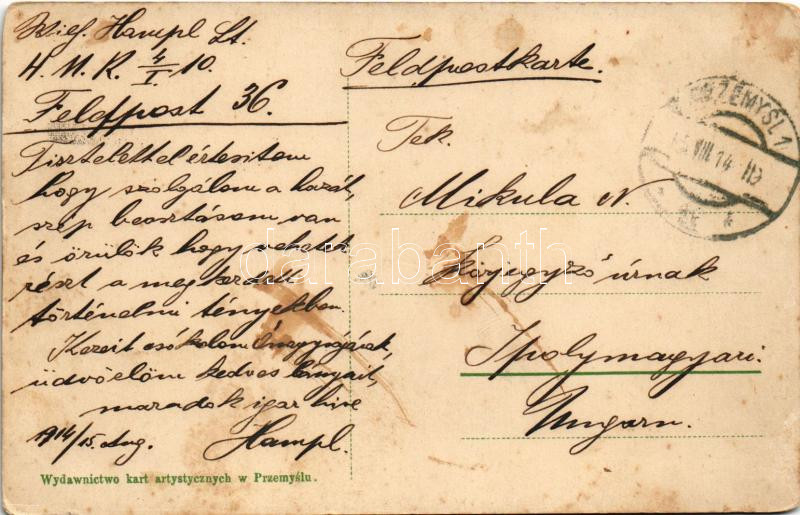 Hampl Lt.
H. M. K. 4/I. 10.
Feldpost 36.
Tisztelettel értesitem
hogy szolgálom a hazát,
szép beosztásom van
és örülök hogy vehetek
részt a megkezdett
történelmi tényekben.
Kezeit csókolom Önagyságának,
üdvözlöm kedves lányait,
maradok igaz hive
1914/15. Aug. Hampl.
Wydawnictwo kart artystycznych w Przemyślu.
Feldpostkarte.
PRZEMYŚL 1
VIII. 14
Tek.
Mikula N.
Körjegyző úrnak
Ipolymagyari.
Ungarn.
darabanth